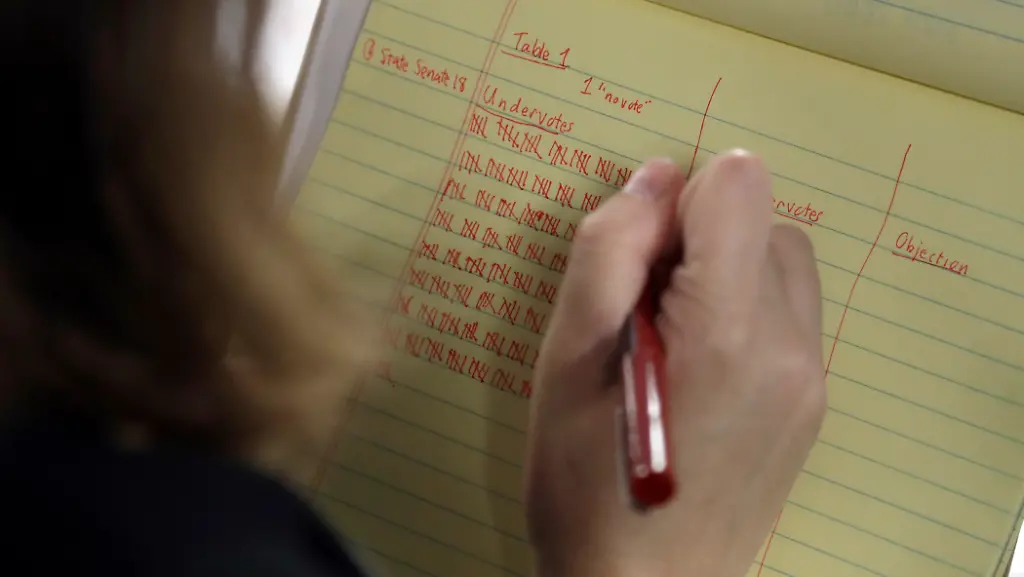 Table 1
@ State Senate 18
1 "no vote"
Undervotes
Objection